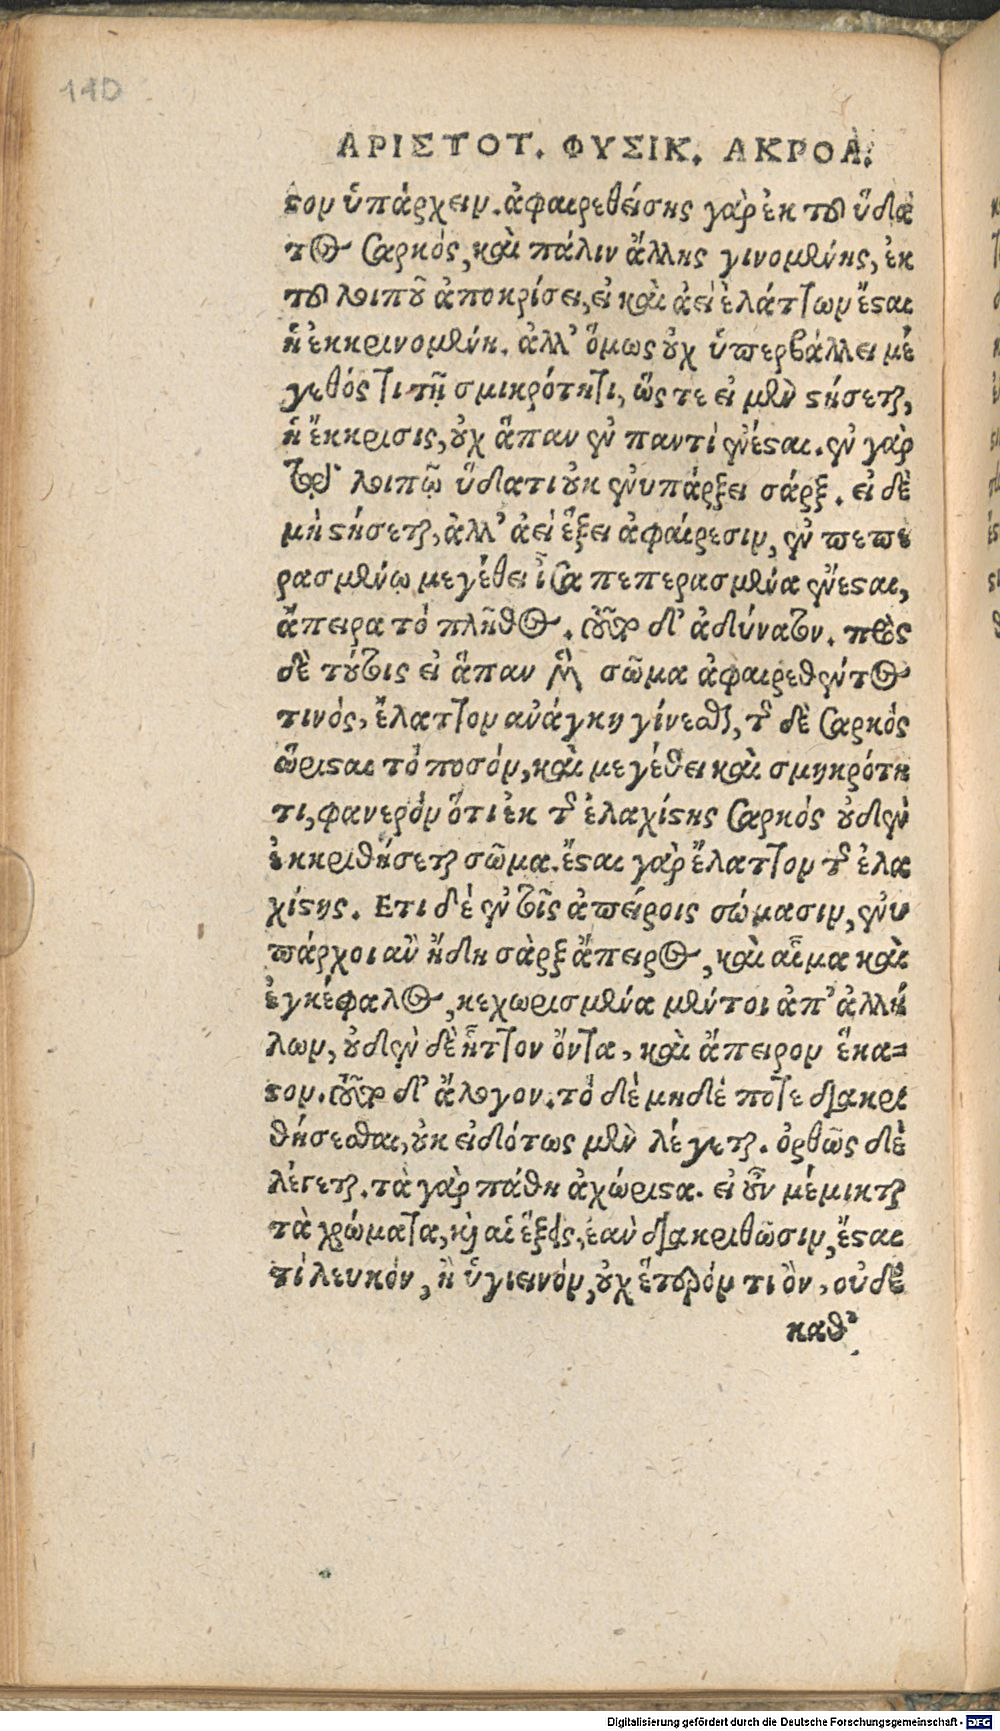 110
ΑΡΙΣΤΟΤ. ΦΥΣΙΚ. ΑΚΡΟΑ.
στον ὑπάρχειν. ἀφαιρεθείσης γὰρ ἐκ τοῦ ὕδα
τος σαρκός, καὶ πάλιν ἄλλης γινομένης, ἐκ
τοῦ λοιποῦ ἀποκρίσει, εἰ καὶ ἀεὶ ἐλάττων ἔσται
ἡ ἐκκρινομένη. ἀλλ' ὅμως οὐχ ὑπερβάλλει μέ
γεθός τι τῇ σμικρότητι, ὥστε εἰ μὲν στήσεται,
ἡ ἔκκρισις, οὐχ ἅπαν ἐν παντὶ ἐνέσται. ἐν γὰρ
τῷ λοιπῷ ὕδατι οὐκ ἐνυπάρξει σάρξ. εἰ δὲ
μὴ στήσεται, ἀλλ' ἀεὶ ἕξει ἀφαίρεσιν, ἐν πεπε
ρασμένῳ μεγέθει ἴσα πεπερασμένα ἐνέσται,
ἄπειρα τὸ πλῆθος. τοῦτο δ' ἀδύνατον. πρὸς
δὲ τούτοις εἰ ἅπαν μὲν σῶμα ἀφαιρεθέντος
τινός, ἔλαττον ἀνάγκη γίνεσθαι, τῆς δὲ σαρκὸς
ὥρισται τὸ ποσόν, καὶ μεγέθει καὶ σμηκρότη
τι, φανερὸν ὅτι ἐκ τῆς ἐλαχίστης σαρκὸς οὐδὲν
ἐκκριθήσεται σῶμα. ἔσται γὰρ ἔλαττον τῆς ἐλα
χίστης. Ετι δὲ ἐν τοῖς ἀπείροις σώμασιν, ἐνυ
πάρχοι ἂν ἤδη σὰρξ ἄπειρος, καὶ αἷμα καὶ
ἐγκέφαλος, κεχωρισμένα μέντοι ἀπ' ἀλλή
λων, οὐδὲν δὲ ἧττον ὄντα, καὶ ἄπειρον ἕκα=
στον. τοῦτο δ' ἄλογον. τὸ δὲ μηδέ ποτε διακρι
θήσεσθαι, οὐκ εἰδότως μὲν λέγεται. ὀρθῶς δὲ
λέγεται. τὰ γὰρ πάθη ἀχώριστα. εἰ οὖν μέμικται
τὰ χρώματα, καὶ αἱ ἕξεις, ἐὰν διακριθῶσιν, ἔσται
τὶ λευκόν, ἢ ὑγιεινόν, οὐχ ἕτερόν τι ὂν, οὐδὲ
καθ'
Digitalisierung gefördert durch die Deutsche Forschungsgemeinschaft - DFG